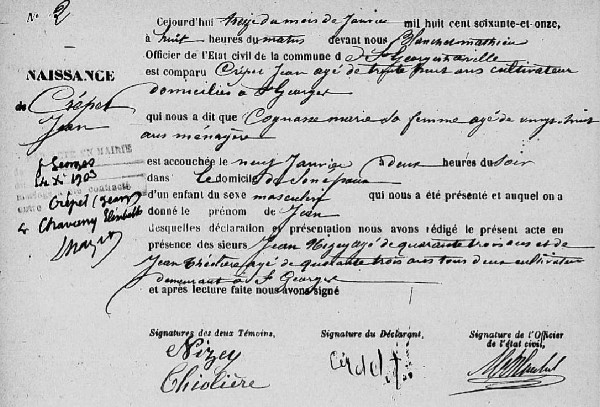 No 2
NAISSANCE
de Crépet
Jean
Cejourd'hui treize du mois de Janvier mil huit cent soixante-et-onze,
à huit heures du matin devant nous Blanchet mathieu
Officier de l'Etat civil de la commune de St Georges
est comparu Crépet Jean agé de trente huit ans cultivateur
domicilié à St Georges
qui nous a dit que Cognasse marie sa femme agé de vingt huit
ans ménagère
est accouchée le neuf Janvier à deux heures du soir
dans le domicile de
d'un enfant du sexe masculin qui nous a été présenté et auquel on a
donné le prénom de Jean
desquelles déclaration et présentation nous avons rédigé le présent acte en
présence des sieurs Jean Nizey agé de quarante trois ans et de
Jean Thiolière agé de quarante trois ans tous deux cultivateurs
demeurant à St Georges
et après lecture faite nous avons signé
MAIRIE
St Georges
1903
a contracté
Crépet (Jean)
Signatures des deux Témoins,
Nizey
Thiolière
Signature du Déclarant,
Signature de l'Officier
de l'état civil,